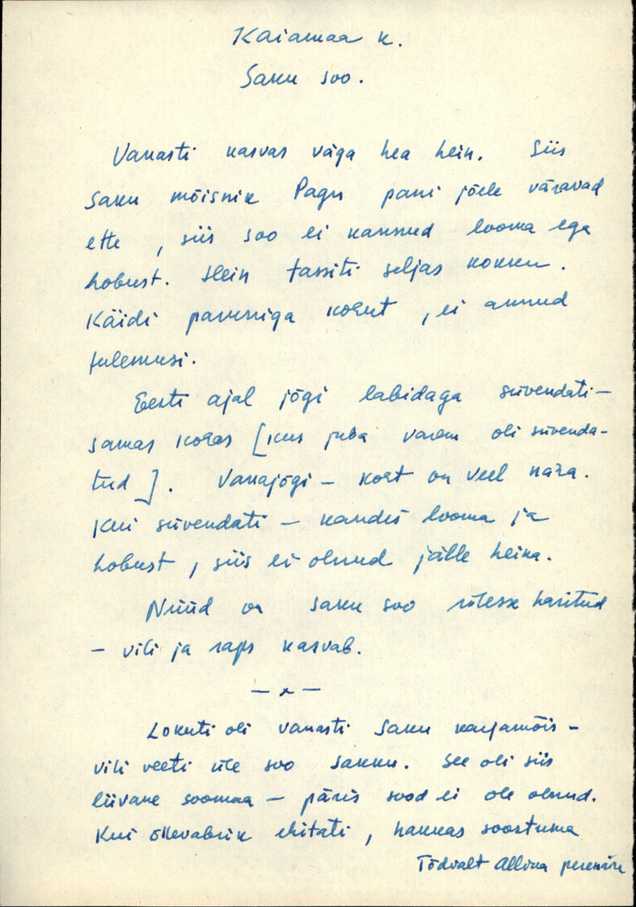 Kaiamaa k.
Saku soo.
Vanasti kasvas väga hea hein. Siis
Saku mõisnik Pagu pani jõele väravad
ette, siis soo ei kannud looma ega
hobust. Hein tassiti seljas kokku.
Käidi parunniga kohut, ei annud
tulemusi.
Eesti ajal jõgi labidaga süvendati –
samas kohas [kus juba varem oli süvenda-
tud]. Vanajõgi – koht on veel näha.
Kui süvendati – kandis looma ja
hobust, siis ei olnud jälle heina.
Nüüd on Saku soo ülesse haritud
– vili ja raps kasvab.
– x –
Lokuti oli vanasti Saku karjamõis –
vili veeti üle soo Sakku. See oli siis
liivane soomaa – päris sood ei ole olnud.
Kui õllevabrik ehitati, hakkas soostuma
Tõdvalt Allika peremees